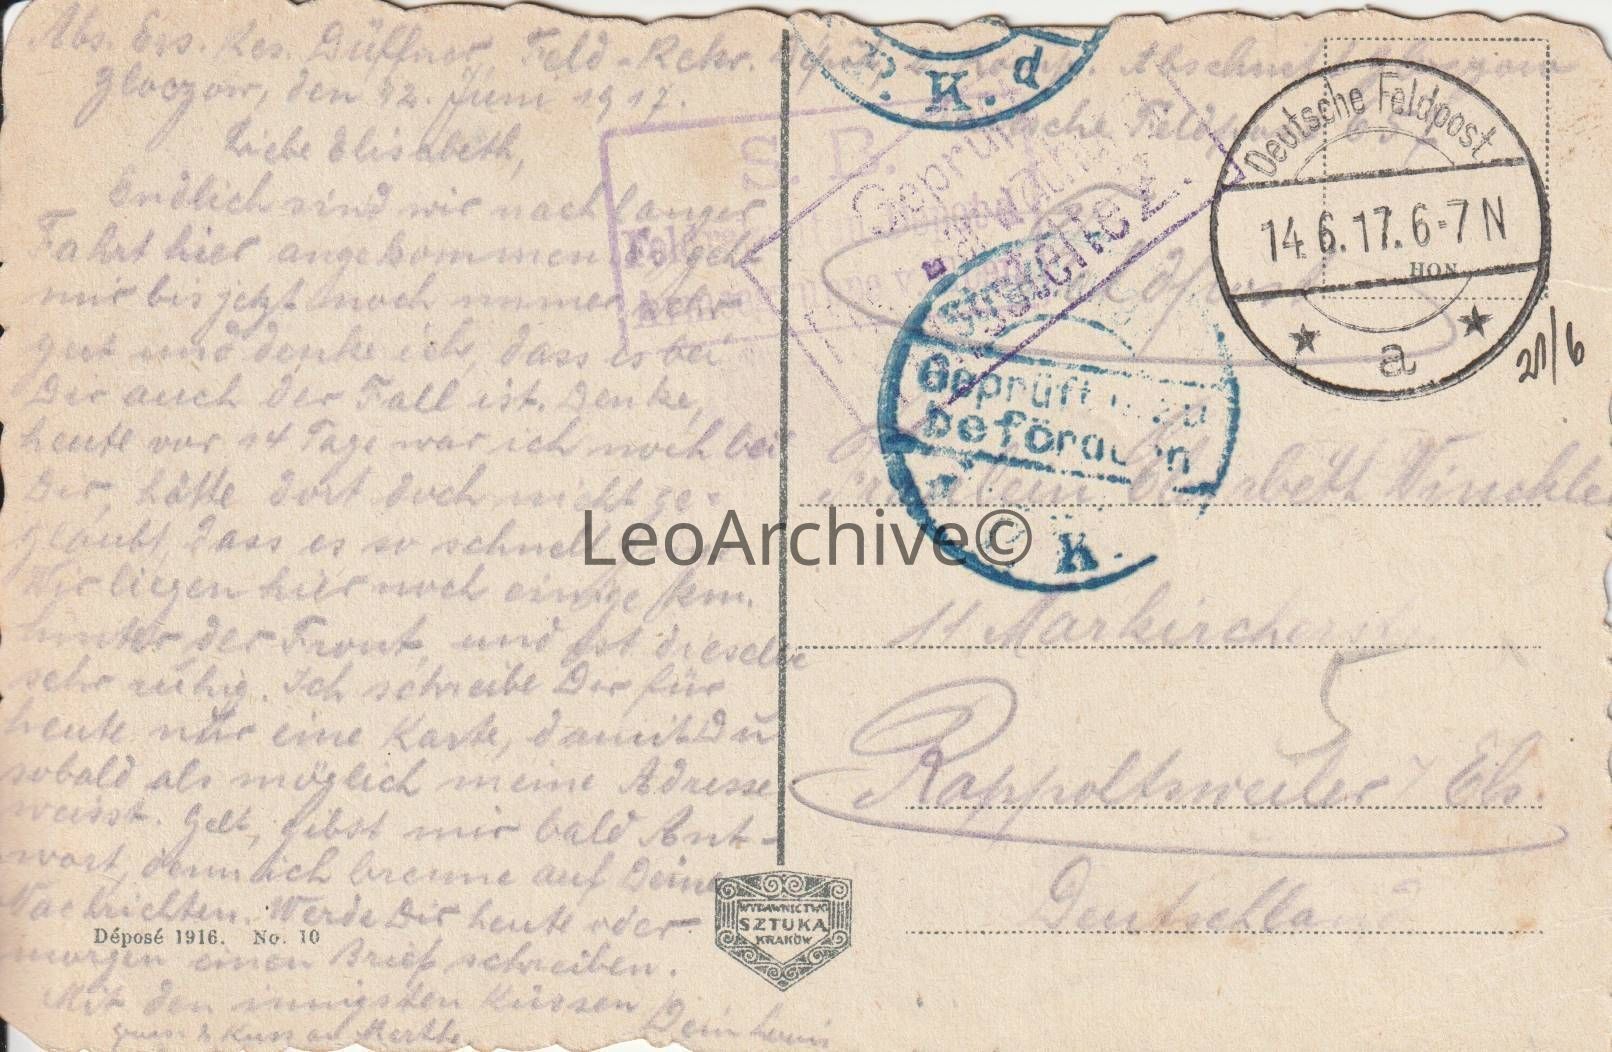 Abs. Ers. Res. Düffner, Feld-Rekr. Abschnitt Gloczow
Gloczow, den 12. Juni 1917. Deutsche Feldpost
Liebe Elisabeth,
Endlich sind wir nach langer
Fahrt hier angekommen. Es geht
mir bis jetzt noch immer sehr
gut und denke ich, dass es bei
Dir auch der Fall ist. Denke,
heute vor 14 Tage war ich noch bei
Dir, hätte dort doch nicht ge-
glaubt, dass es so schnell
Wir liegen hier noch einige km.
hinter der Front, und ist dieselbe
sehr ruhig. Ich schreibe Dir für
heute nur eine Karte, damit Du
sobald als möglich meine Adresse
weisst. Gelt, gibst mir bald Ant-
wort, denn ich brenne auf Deine
Nachrichten. Werde Dir heute oder
morgen einen Brief schreiben.
Mit den innigsten Küssen
Dein
Gruss & Kuss an Marthe
Déposé 1916. No. 10
WYDAWNICTWO
SZTUKA
KRAKÓW
K. d
S. B.
Geprüft
Deutsche Feldpost
14.6.17.6-7N
a
HON
21/6
Geprüft u. zu
befördern
K.
Fräulein Elisabeth Winckler
11 Markircher
Rappoltsweiler / Els.
Deutschland
LeoArchive©